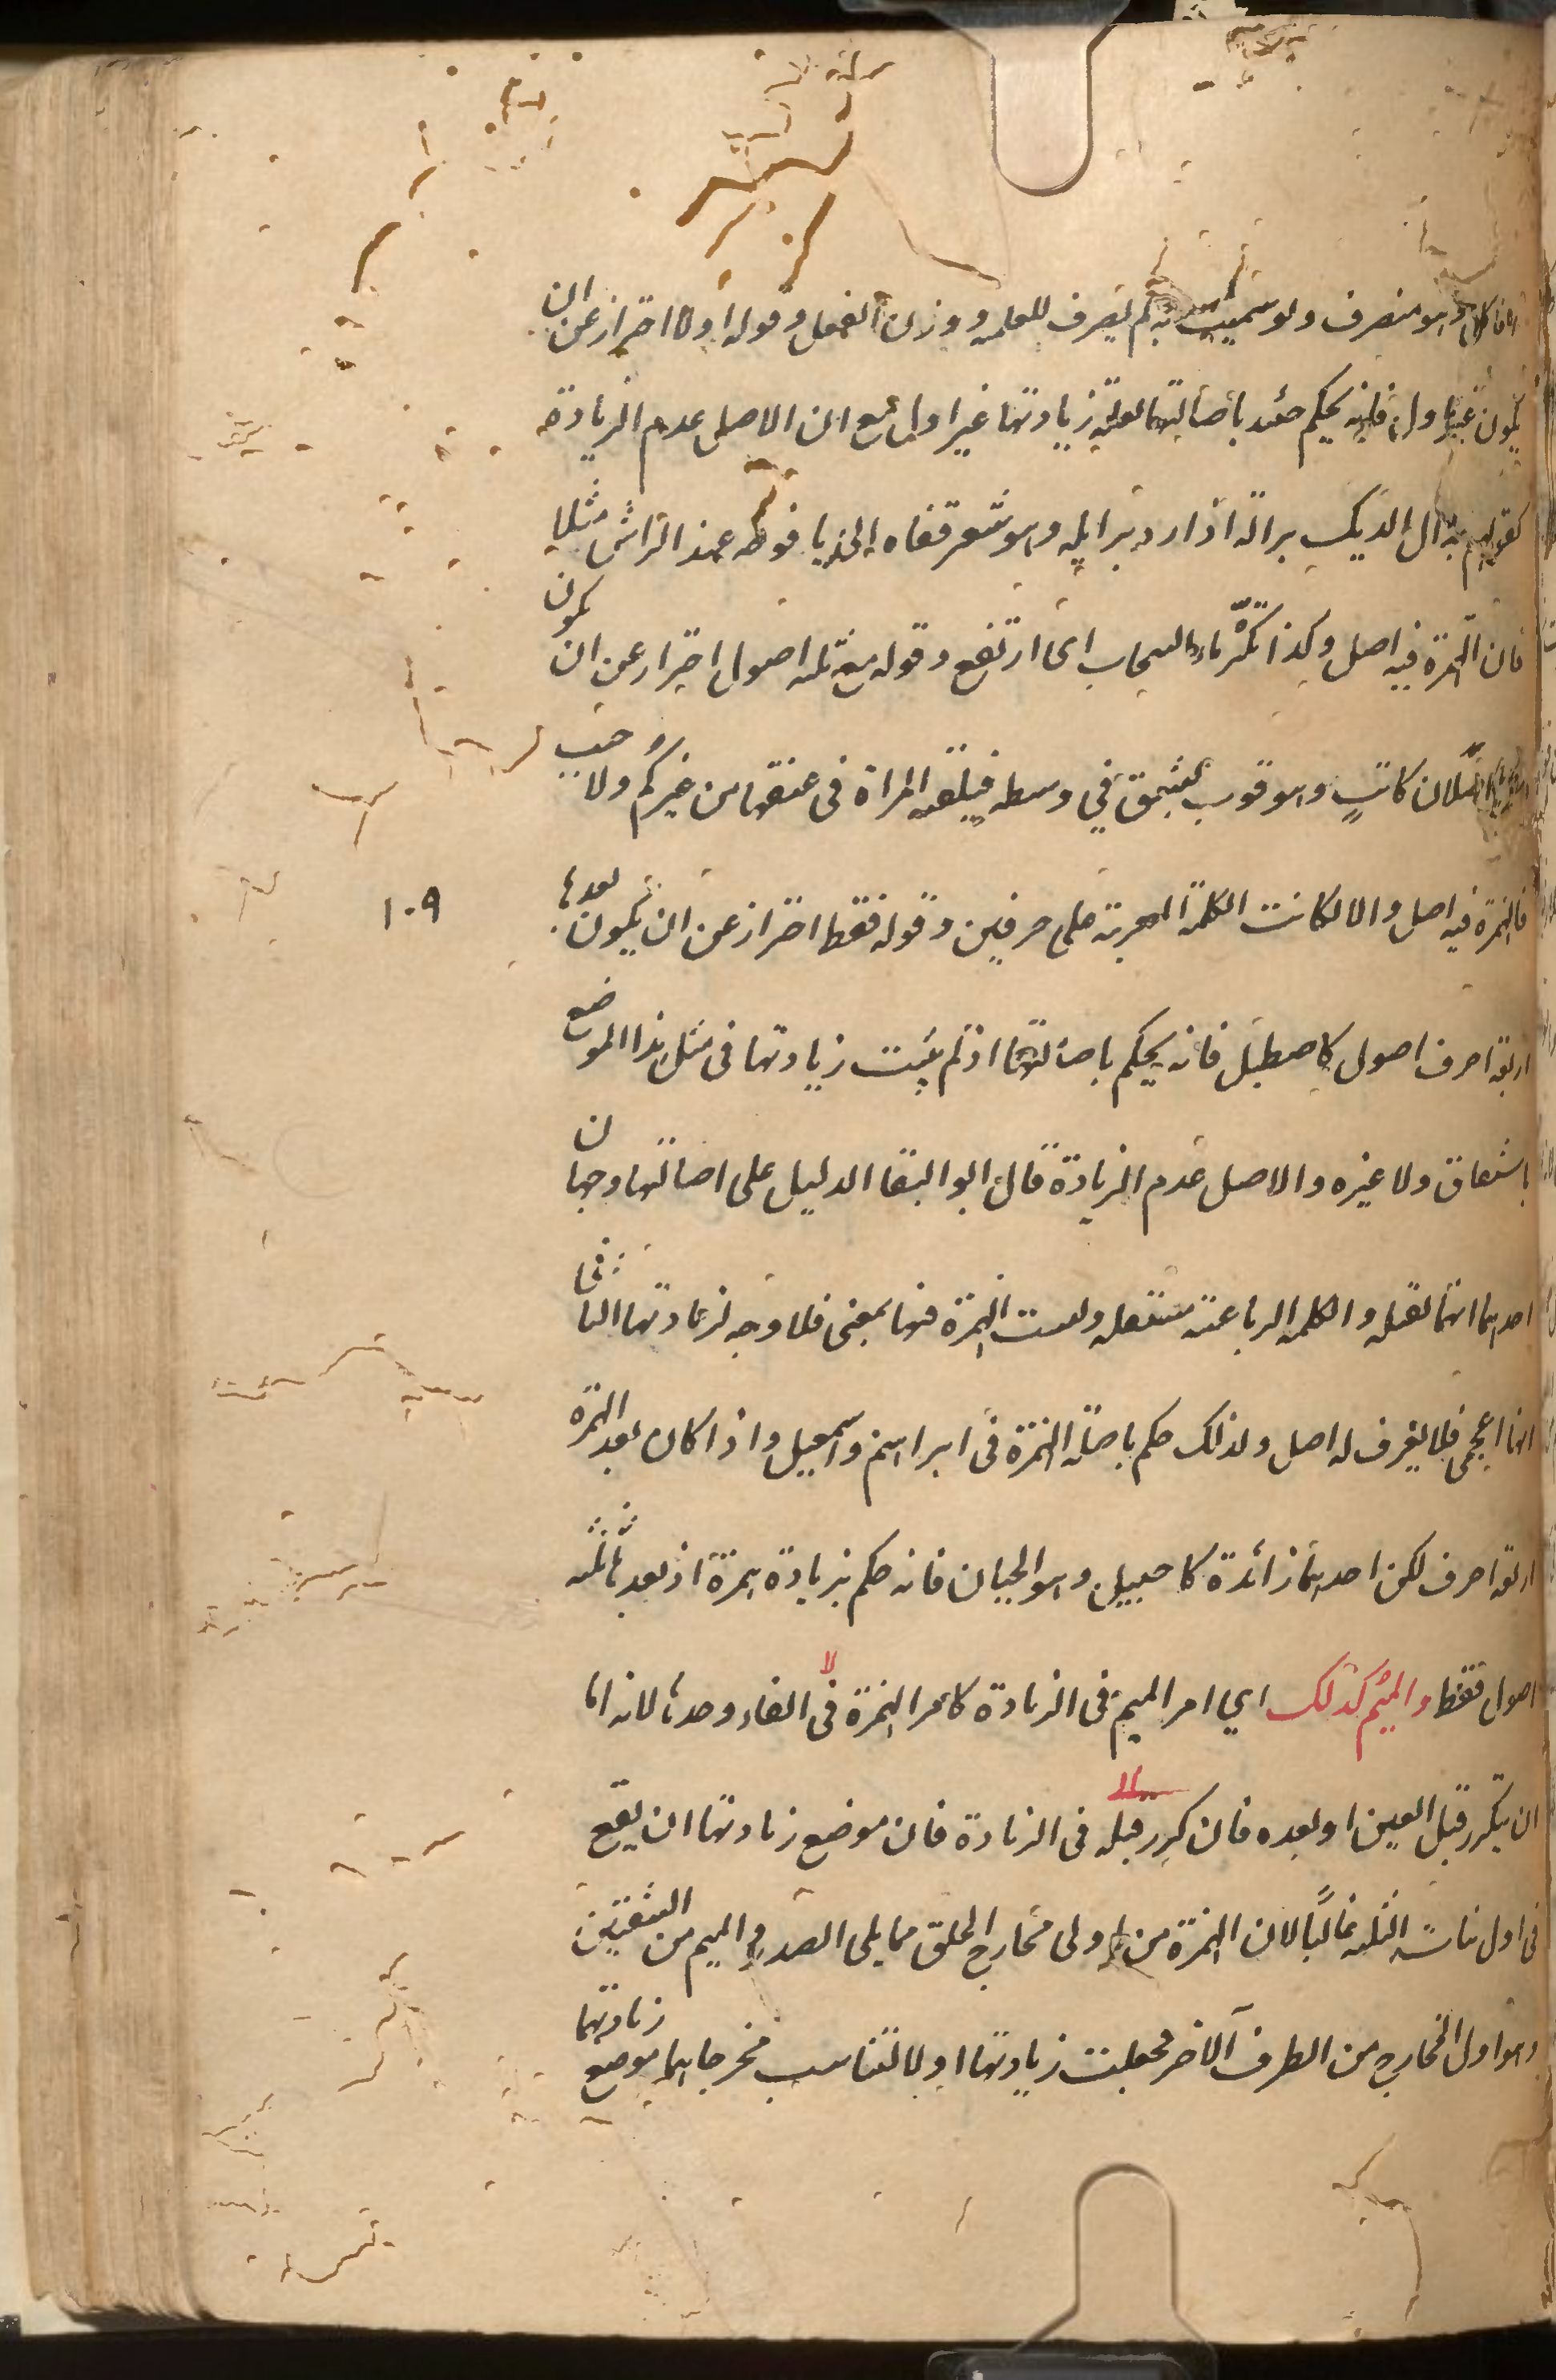 وهو منصرف ولو سميت به لم يصرف للعلميه ووزن الفعل وقوله اولا احتراز عن ان
يكون غير اول فانه يحكم حئند باصالتها لقلة زيادتها غير اول مع ان الاصل عدم الزيادة
كقولهم برأل الديك برألة اذا رد برايله وهو شعر قفاه الذي يافوخه عند الهراش مثلا
فان الهمزة فيه اصل وكذا تكرثأ السحاب اى ارتفع وقوله مع ثلثه اصول احتراز عن ان يكون
كاتب وهو ثوب يشق في وسطه فيلقيه المراة فى عنقها من غير كم ولا جيب
فالهمزة فيه اصل والا لكانت الكلمة المعربة على حرفين وقوله فقط احتراز عن ان يكون بعدها
اربعة احرف اصول كاصطبل فانه يحكم باصالتها اذ لم يثبت زيادتها فى مثل هذا الموضع
باشتقاق ولا غيره والاصل عدم الزيادة قال ابو البقا الدليل على اصالتها وجهان
احدهما انها ثقيله والكلمه الرباعية مستثقله وليست الهمزة فيها بمعنى فلا وجه لزيادتها الثانى
انها اعجمى فلا يعرف له اصل ولذلك حكم باصالة الهمزة فى ابراهيم واسمعيل واذا كان بعد الهمزة
اربعة احرف لكن احديها زائدة كاجبيل وهو الجبان فانه حكم بزيادة همزة اذ بعدها ثلثه
اصول فقط والميم كذلك اي امر الميم فى الزيادة كامر الهمزة فى لا الفاء وحدها لانه اما
ان يتكرر قبل العين او بعده فان كرر قبله الى فى الزيادة فان موضع زيادتها ان يقع
فى اول بنات الثلثه غالبًا لان الهمزة من اولى مخارج الحلق مما يلى الصدر والميم من الشفتين
وهو اول المخارج من الطرف الآخر فجعلت زيادتها اولا لتناسب مخرجاهما موضع زيادتهما
١٠٩